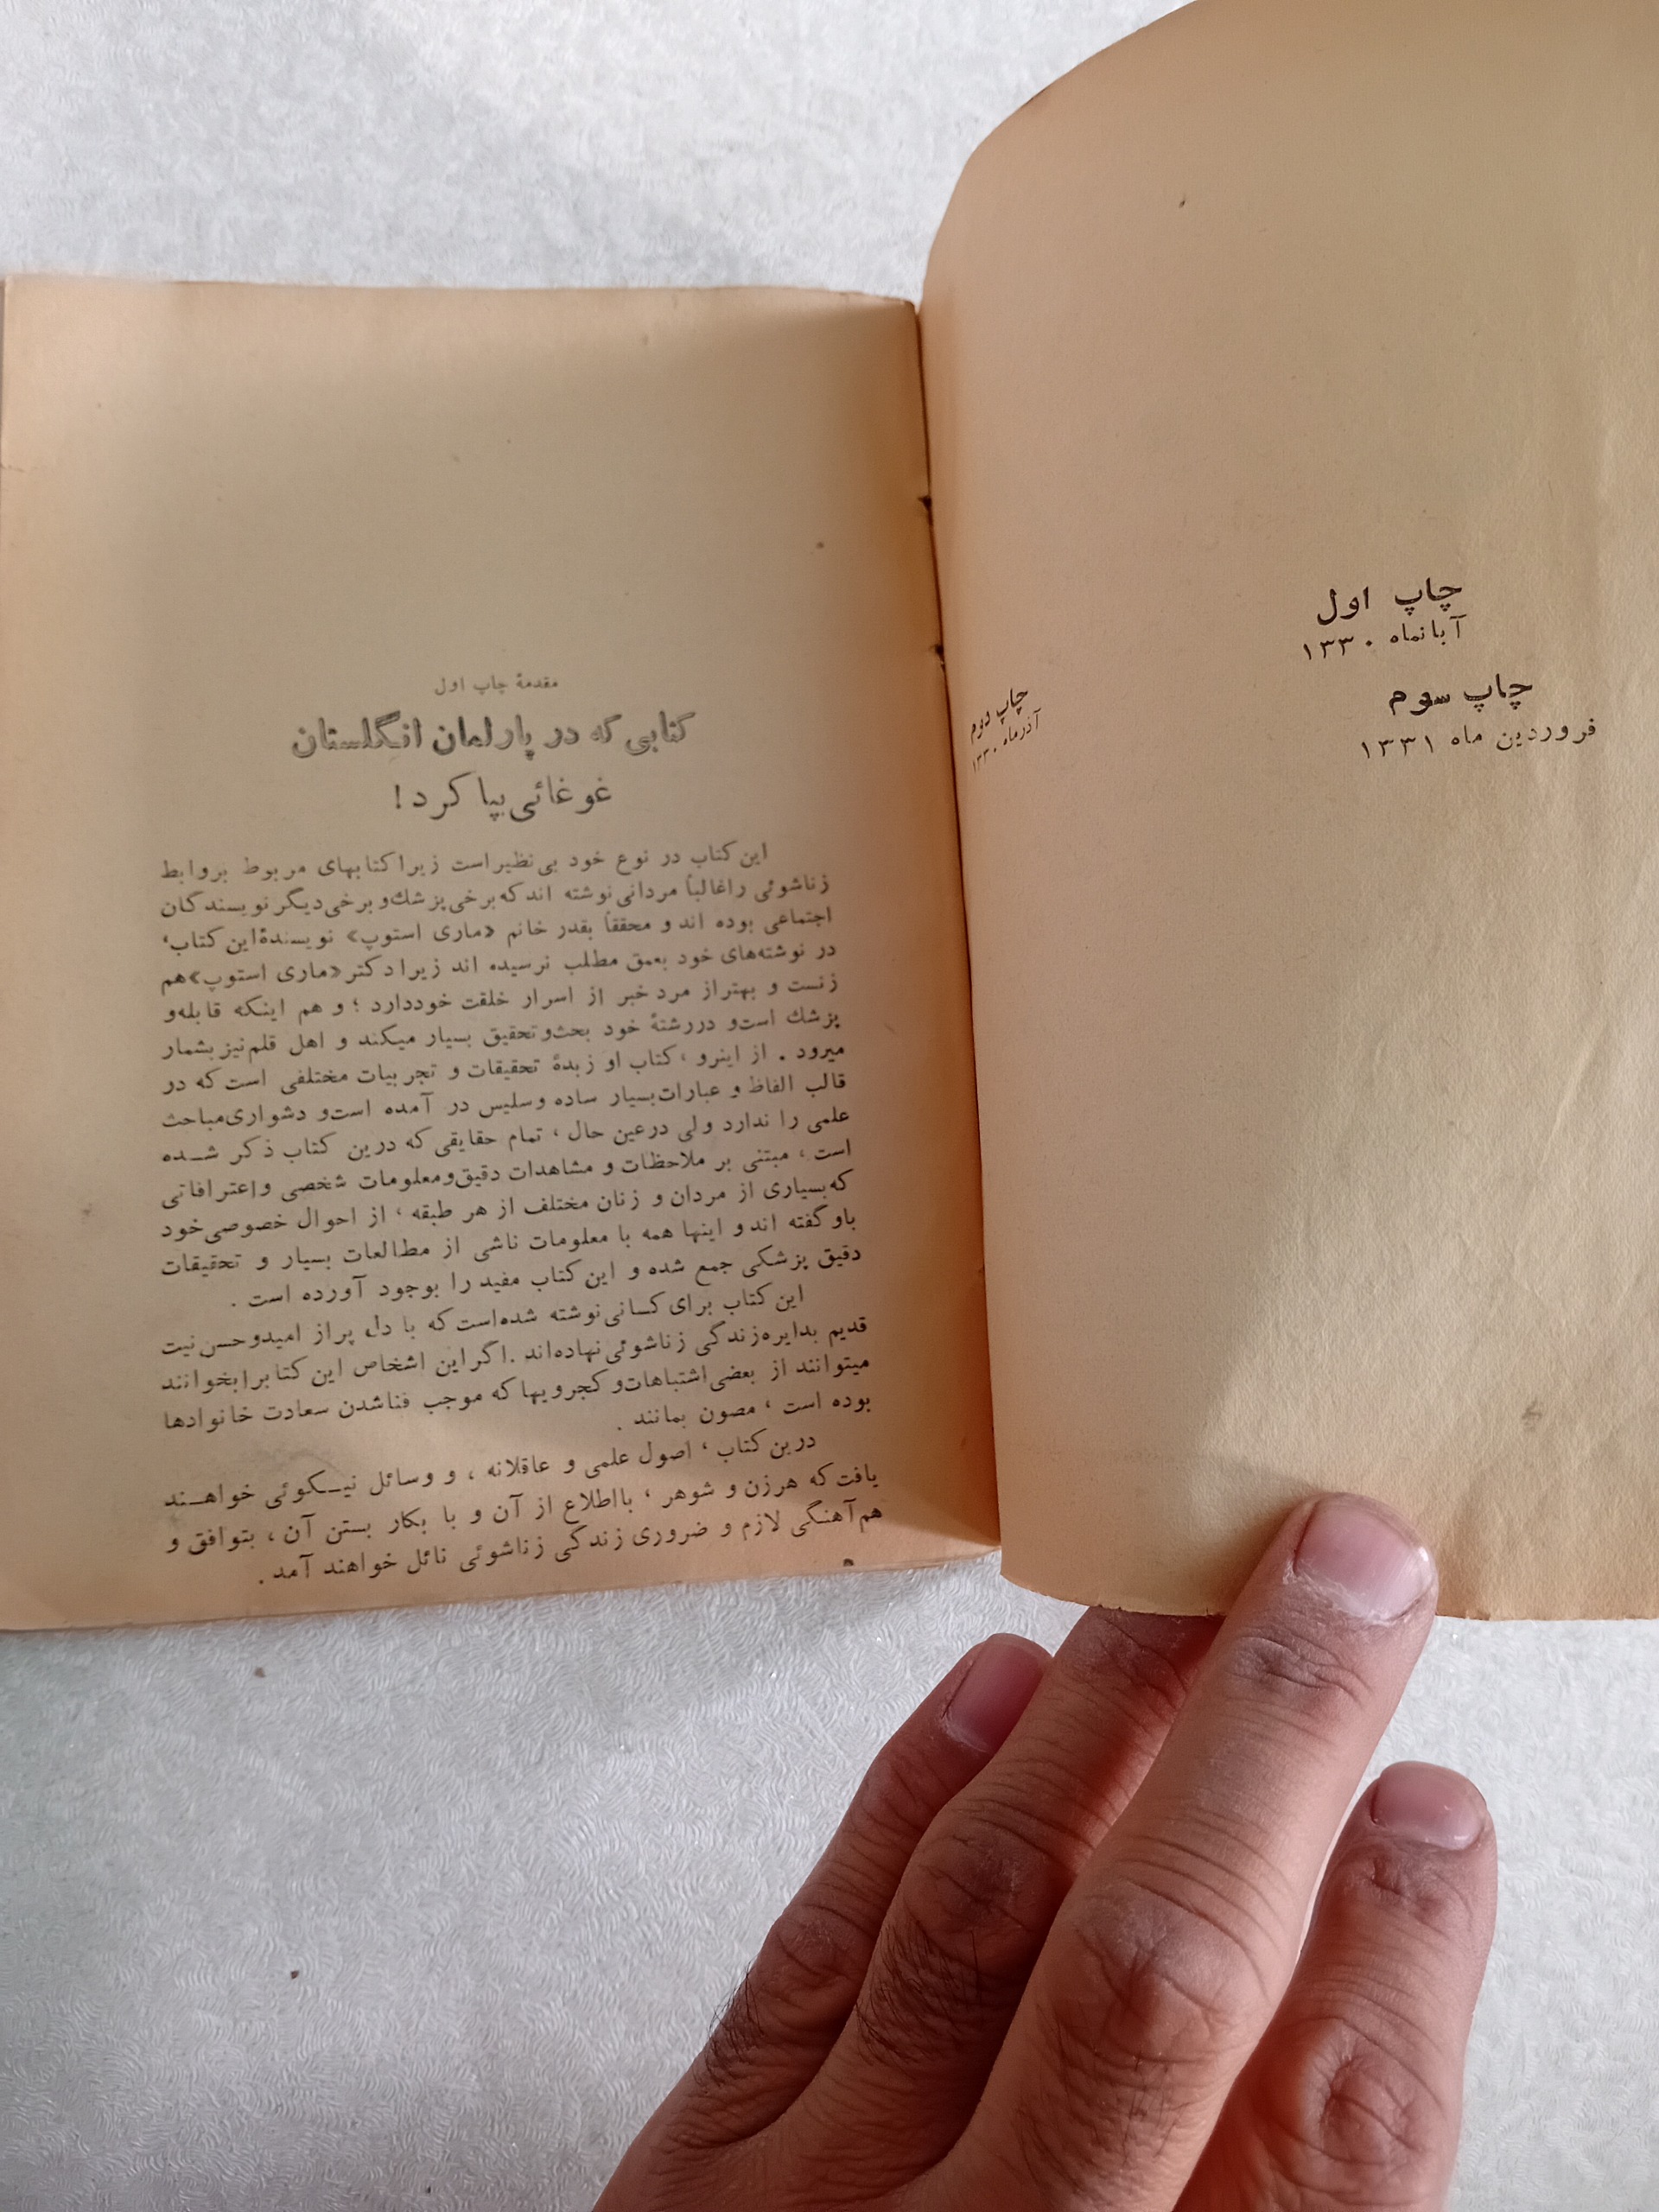 چاپ اول
آبانماه ۱۳۳۰
چاپ دوم
آذرماه ۱۳۳۰
چاپ سوم
فروردین ماه ۱۳۳۱
مقدمهٔ چاپ اول
کتابی که در پارلمان انگلستان
غوغائی بپا کرد!
این کتاب در نوع خود بی‌نظیر است زیرا کتابهای مربوط بروابط
زناشوئی را غالباً مردانی نوشته اند که برخی پزشك و برخی دیگر نویسندگان
اجتماعی بوده اند و محققاً بقدر خانم «ماری استوپ» نویسندهٔ این کتاب،
در نوشته‌های خود بعمق مطلب نرسیده اند زیرا دکتر «ماری استوپ» هم
زنست و بهتر از مرد خبر از اسرار خلقت خود دارد ؛ و هم اینکه قابله و
پزشك است و در رشتهٔ خود بحث و تحقیق بسیار میکند و اهل قلم نیز بشمار
میرود . از اینرو ، کتاب او زبدهٔ تحقیقات و تجربیات مختلفی است که در
قالب الفاظ و عبارات بسیار ساده و سلیس در آمده است و دشواری مباحث
علمی را ندارد ولی در عین حال ، تمام حقایقی که درین کتاب ذکر شـده
است ، مبتنی بر ملاحظات و مشاهدات دقیق و معلومات شخصی و اعترافاتی
که بسیاری از مردان و زنان مختلف از هر طبقه ، از احوال خصوصی خود
باو گفته اند و اینها همه با معلومات ناشی از مطالعات بسیار و تحقیقات
دقیق پزشکی جمع شده و این کتاب مفید را بوجود آورده است .
این کتاب برای کسانی نوشته شده است که با دلی پر از امید و حسن نیت
قدیم بدایره زندگی زناشوئی نهاده‌اند . اگر این اشخاص این کتابرا بخوانند
میتوانند از بعضی اشتباهات و کجرویها که موجب فنا شدن سعادت خانوادها
بوده است ، مصون بمانند .
درین کتاب ، اصول علمی و عاقلانه ، و وسائل نیـکوئی خواهـند
یافت که هر زن و شوهر ، با اطلاع از آن و با بکار بستن آن ، بتوافق و
هم‌آهنگی لازم و ضروری زندگی زناشوئی نائل خواهند آمد .